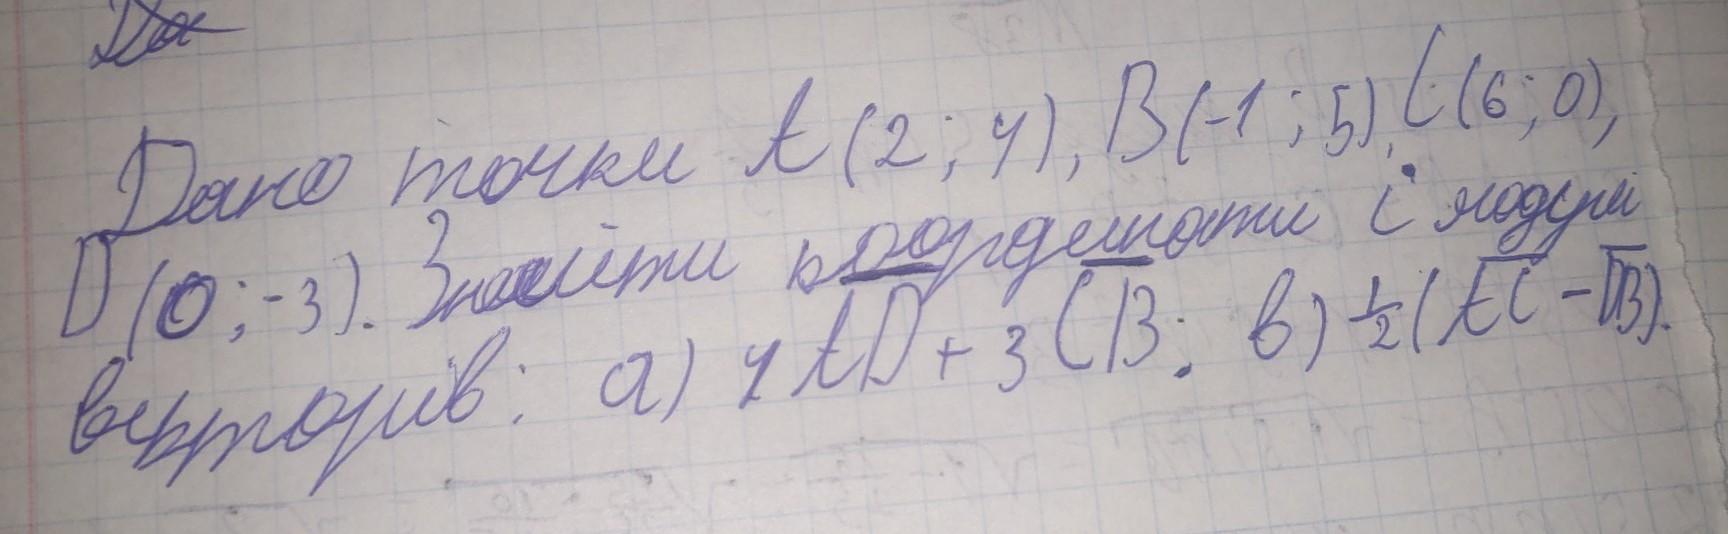 Да
Дано точки A(2; 4), B(-1; 5), C(6; 0),
D(0; -3). Знайти координати і модулі
векторів: а) 4AD + 3CB; в) 1/2(AC - DB).